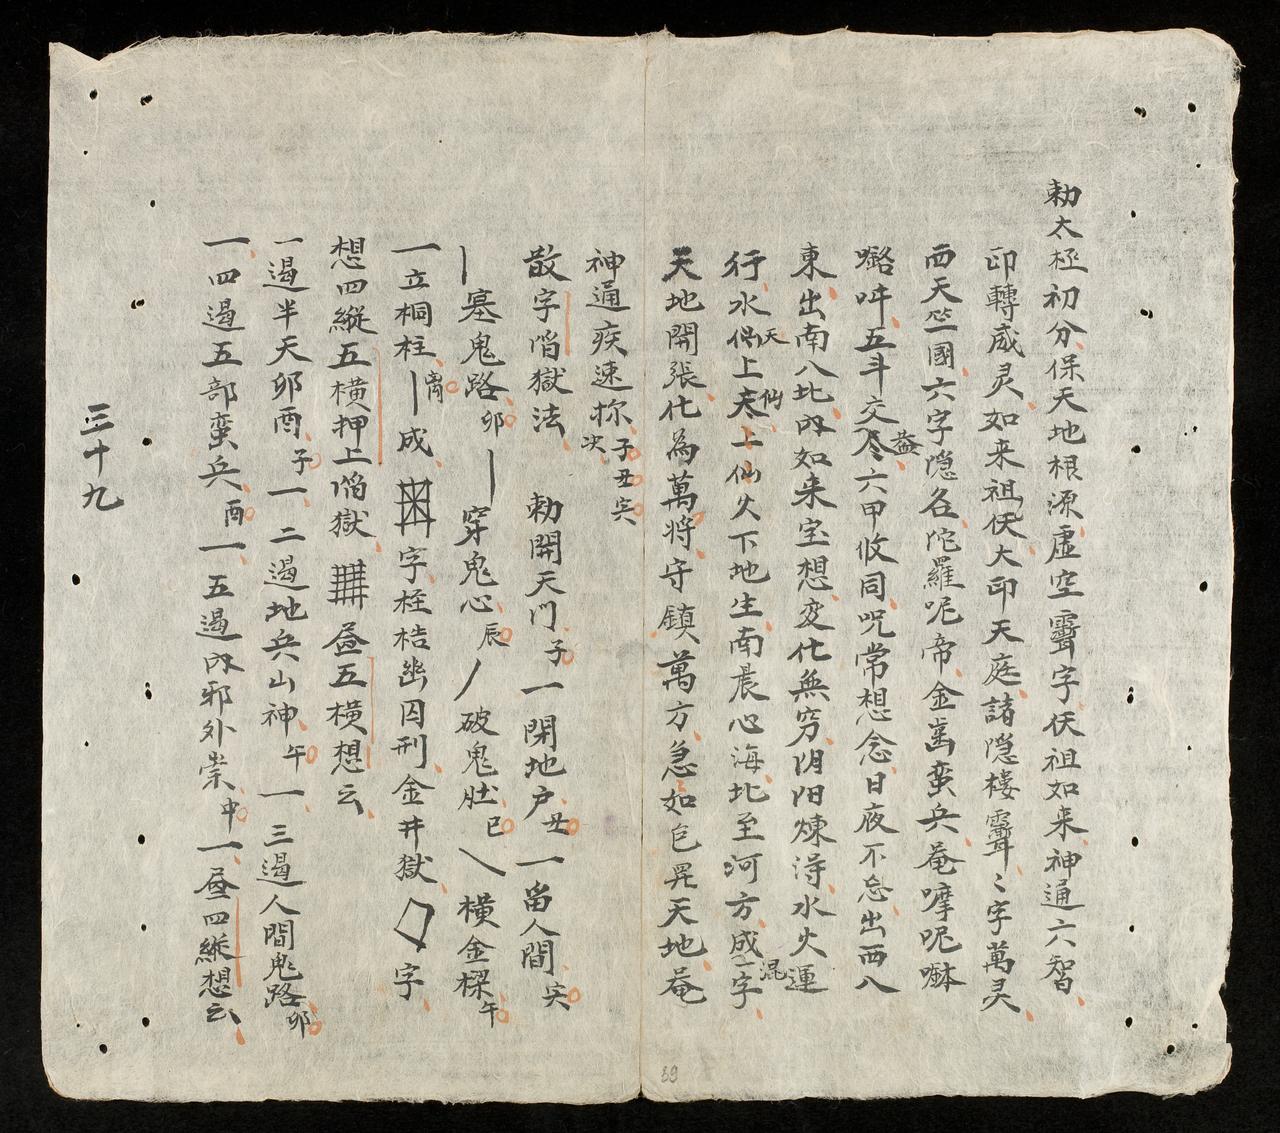 勅太極初分保天地根源虛空靈字伏祖如来神通六智
印轉威灵如来祖伏大印天庭諸隱樓靈〻字萬灵
西天竺國六字隱名陀羅呢帝金崙蛮兵菴嘜呢
㗰吽五斗交尽蓋六甲收同咒常想念日夜不忘出西八
東出南八北內如来宝想变化無穷阴阳煉淂水火運
行水偈天上天仙上仙火下地生南晨心海北至河方成混一字
天地開張化為萬将守鎮萬方急如包罡天地菴
神通疾速你决子丑寅
散字陷獄法 勅開天門子一閉地户丑一留人間寅
塞鬼路卯 穿鬼心辰 破鬼肚巳 横金樑午
一立桐柱 成 字桎梏幽囚刑金井獄 字
想四縱五横押上陷獄 昼五横想云
一遍半天卯酉子一 二遍地兵山神午一 三遍人間鬼路卯
一四遍五部蛮兵酉一五遍內邪外崇申一昼四縱想云
三十九
39